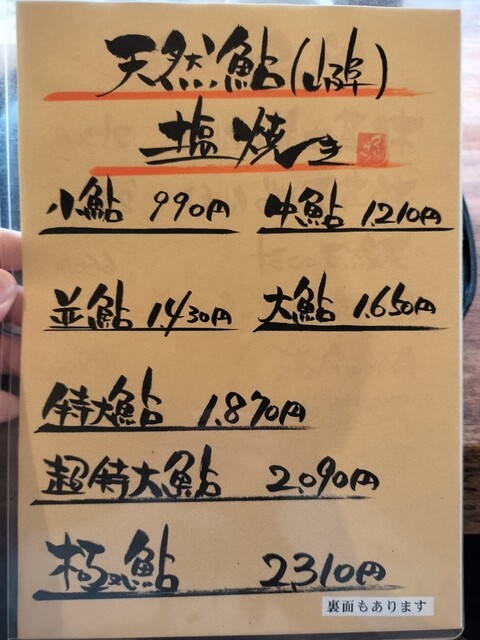 天然鮎(山陣)
塩焼き
小鮎 990円 中鮎 1,210円
並鮎 1,430円 大鮎 1,650円
特大鮎 1,870円
超特大鮎 2,090円
極鮎 2,310円
裏面もあります